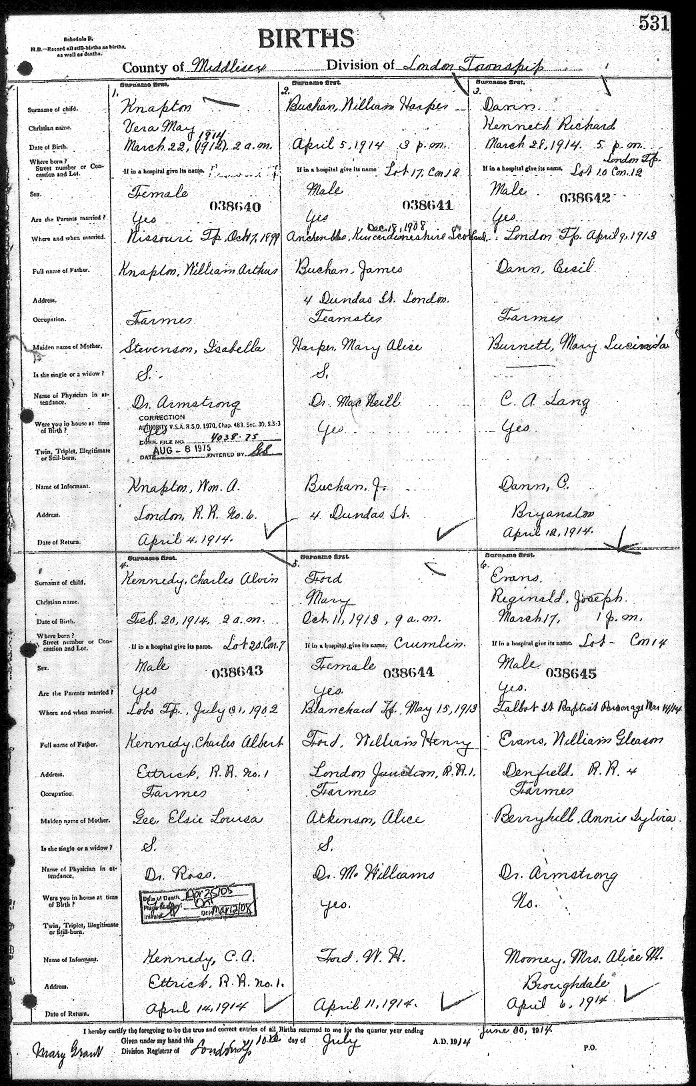 531
Schedule B.
N.B.—Record all still-births as births, as well as deaths.
BIRTHS
County of Middlesex Division of London Township
1. Surname first. 2. Surname first. 3. Surname first.
Surname of child. Knapton Buchan, William Harper Dann
Christian name. Vera May Kenneth Richard
1914
Date of Birth. March 22, (1912). 2 a.m. April 5, 1914 3 p.m. March 28, 1914. 5 p.m.
London Tp.
Where born? Street number or Concession and Lot. If in a hospital give its name. If in a hospital give its name Lot 17, Con 12 If in a hospital give its name Lot 10 Con. 12
Sex. Female Male Male
038640 038641 038642
Are the Parents married? Yes Yes Yes
Dec. 18, 1908
Where and when married. Nissouri Tp. Oct 7, 1899 Kincardineshire Scotland London Tp. April 9, 1913
Full name of Father. Knapton, William Arthur Buchan, James Dann, Cecil
Address. 4 Dundas St. London.
Occupation. Farmer Teamster Farmer
Maiden name of Mother. Stevenson, Isabella Harper, Mary Alice Burnett, Mary Lucinda
Is she single or a widow? S. S.
Name of Physician in attendance. Dr. Armstrong Dr. MacNeill C. A. Lang
Were you in house at time of Birth? Yes Yes Yes
CORRECTION
AUTHORITY V.S.A. R.S.O. 1970, Chap. 483, Sec. 30, S.S.3
CORR. FILE NO. 4038-75
DATE AUG - 8 1975 ENTERED BY
Twin, Triplet, Illegitimate or Still-born.
Name of Informant. Knapton, Wm. A. Buchan, J. Dann, C.
Address. London, R.R. No. 6. 4 Dundas St. Bryanston
Date of Return. April 4, 1914. April 12, 1914.
4. Surname first. 5. Surname first. 6. Surname first.
Surname of child. Kennedy, Charles Alvin Ford Evans.
Christian name. Mary Reginald, Joseph.
Date of Birth. Feb. 20, 1914, 2 a.m. Oct. 11, 1913, 9 a.m. March 17, 1 p.m.
Where born? Street number or Concession and Lot. If in a hospital give its name. Lot 20. Con. 7 If in a hospital give its name. Crumlin. If in a hospital give its name. Lot - Con 14
Sex. Male Female Male
038643 038644 038645
Are the Parents married? Yes Yes. Yes.
Where and when married. Lobo Tp., July 31, 1902 Blanchard Tp. May 15, 1913 Talbot St Baptist Parsonage Mar 14/14
Full name of Father. Kennedy, Charles Albert Ford, William Henry Evans, William Gleason
Address. Ettrick, R.R. No. 1 London Junction, R.R. 1. Denfield, R.R. 4
Occupation. Farmer Farmer Farmer
Maiden name of Mother. Gee, Elsie Louisa Atkinson, Alice Berryhill, Annie Sylvia
Is she single or a widow? S. S.
Name of Physician in attendance. Dr. Ross. Dr. McWilliams Dr. Armstrong
Were you in house at time of Birth? yes. No.
Date of Death Apr 25/05
Ont
Mar 12/08
Twin, Triplet, Illegitimate or Still-born.
Name of Informant. Kennedy, C. A. Ford, W. H. Mooney, Mrs. Alice M.
Address. Ettrick, R.R. No. 1. Broughdale
Date of Return. April 14, 1914 April 11, 1914. April 6, 1914
I hereby certify the foregoing to be the true and correct entries of all Births returned to me for the quarter year ending June 30, 1914
Given under my hand this 10th day of July A.D. 1914
Mary Grant Division Registrar of London Tp P.O.